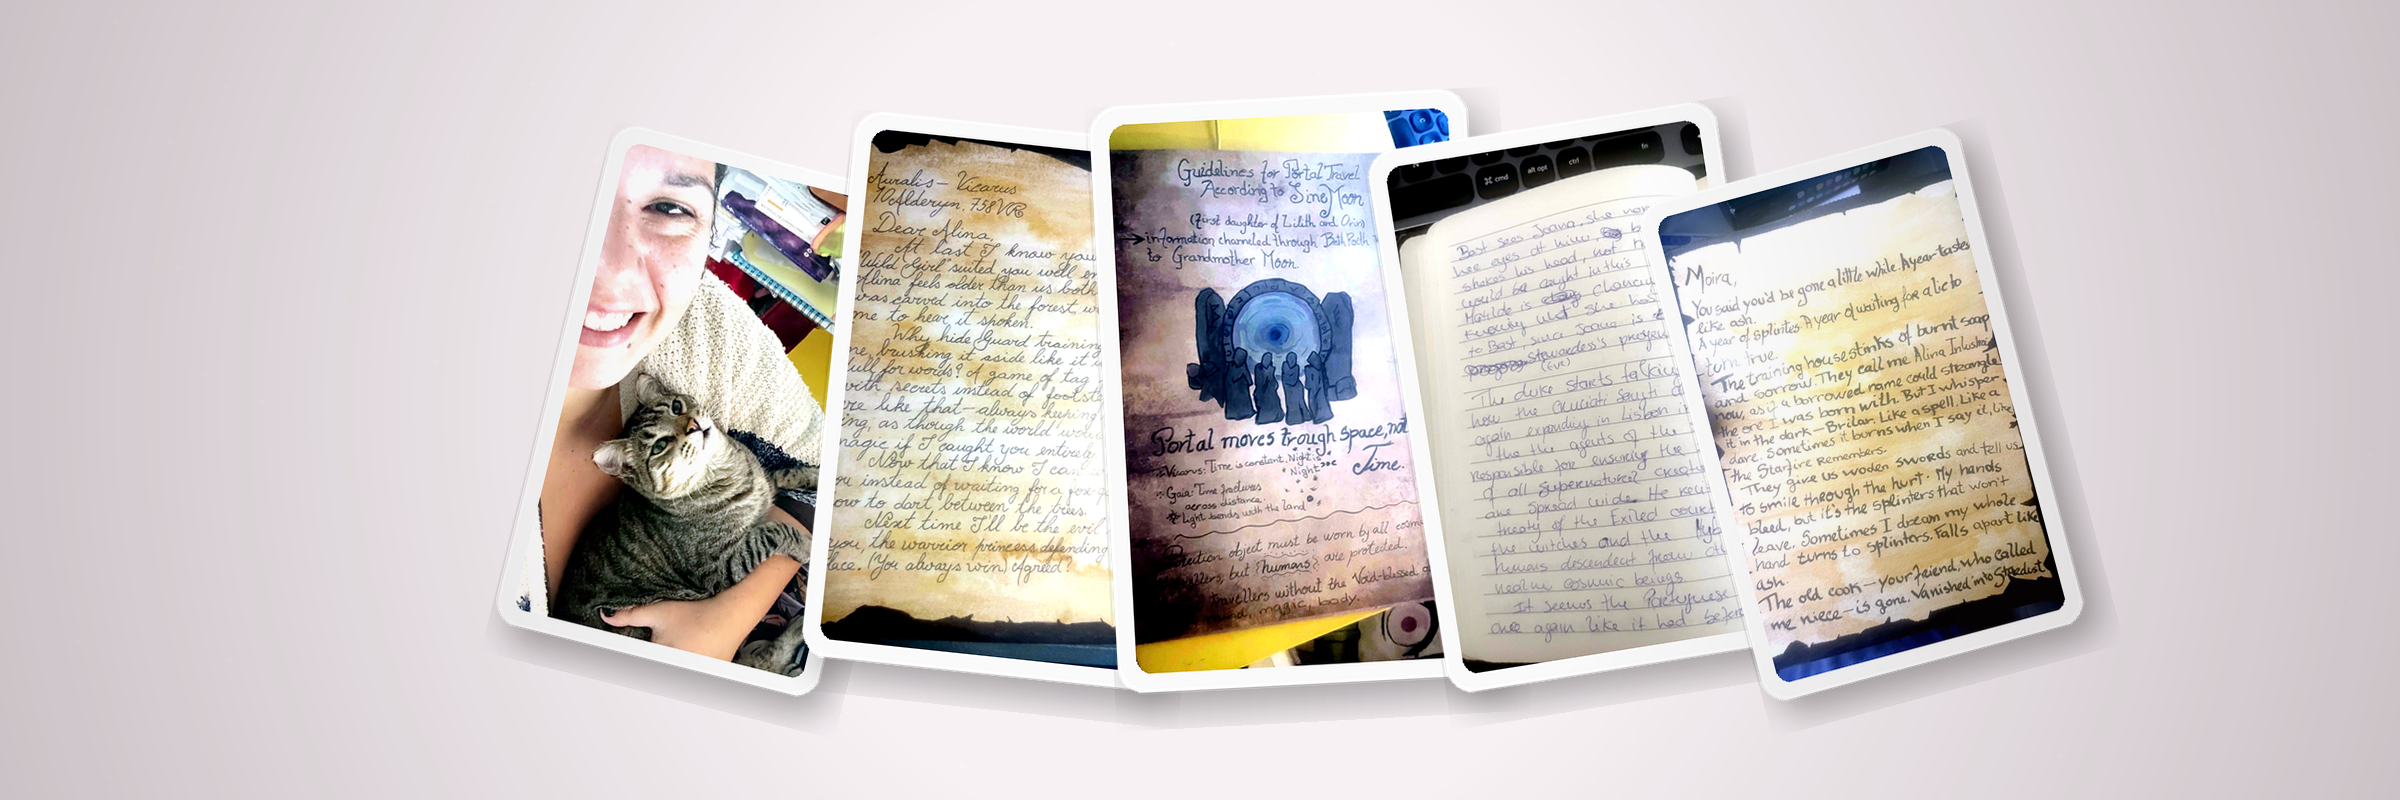 Auralis – Vicarus
10 Alderyn, 758 VR
Dear Alina,
At last I know your
"Wild Girl" suited you well en
Alina feels older than us both
was carved into the forest, w
me to hear it spoken.
Why hide Guard training
me, brushing it aside like it
ull for words? A game of tag
with secrets instead of footste
're like that — always keeping
ing, as though the world wou
magic if I caught you entirely
Now that I know I can
ou instead of waiting for a fox
ow to dart between the trees.
Next time I'll be the evil
you, the warrior princess defending
lace. (You always win) Agreed?
Guidelines for Portal Travel
According to Sine Moon
(First daughter of Lilith and Orin)
information channeled through Beth
to Grandmother Moon.
Portal moves trough space, not
Time.
Vicarus: Time is constant. Night is
Night
Gaia: Time fractures
across distance.
Light bends with the land
object must be worn by all cosm
ellers, but humans are protected.
travellers without the Void-blessed
mind, magic, body.
⌘ cmd
alt opt
ctrl
fn
Bast sees Joana, she
her eyes at him,
shakes his head, not
would be caught in this
Matilde is
knowing what she has
to Bast, since Joana is
stewardess's
(Eve)
The duke starts talking
how the Cruciati
again expanding in Lisbon
the agents of the
responsible for ensuring the
of all supernatural
are spread wide. He
treaty of the Exiled court
the witches and the
humans descendent from
realm cosmic beings.
It seems the Portuguese
once again like it had before
Moira,
You said you'd be gone a little while. A year tastes
like ash.
A year of splinters. A year of waiting for a lie to
turn true.
The training house stinks of burnt soap
and sorrow. They call me Alina
now, as if a borrowed name could strangle
the one I was born with. But I whisper
it in the dark — Brilar. Like a spell. Like a
dare. Sometimes it burns when I say it, like
the Starfire Remembers.
They give us woden swords and tell us
to smile through the hurt. My hands
bleed, but it's the splinters that won't
leave. Sometimes I dream my whole
hand turns to splinters. Falls apart like
ash.
The old cook — your friend, who called
me niece — is gone. Vanished into Stardust